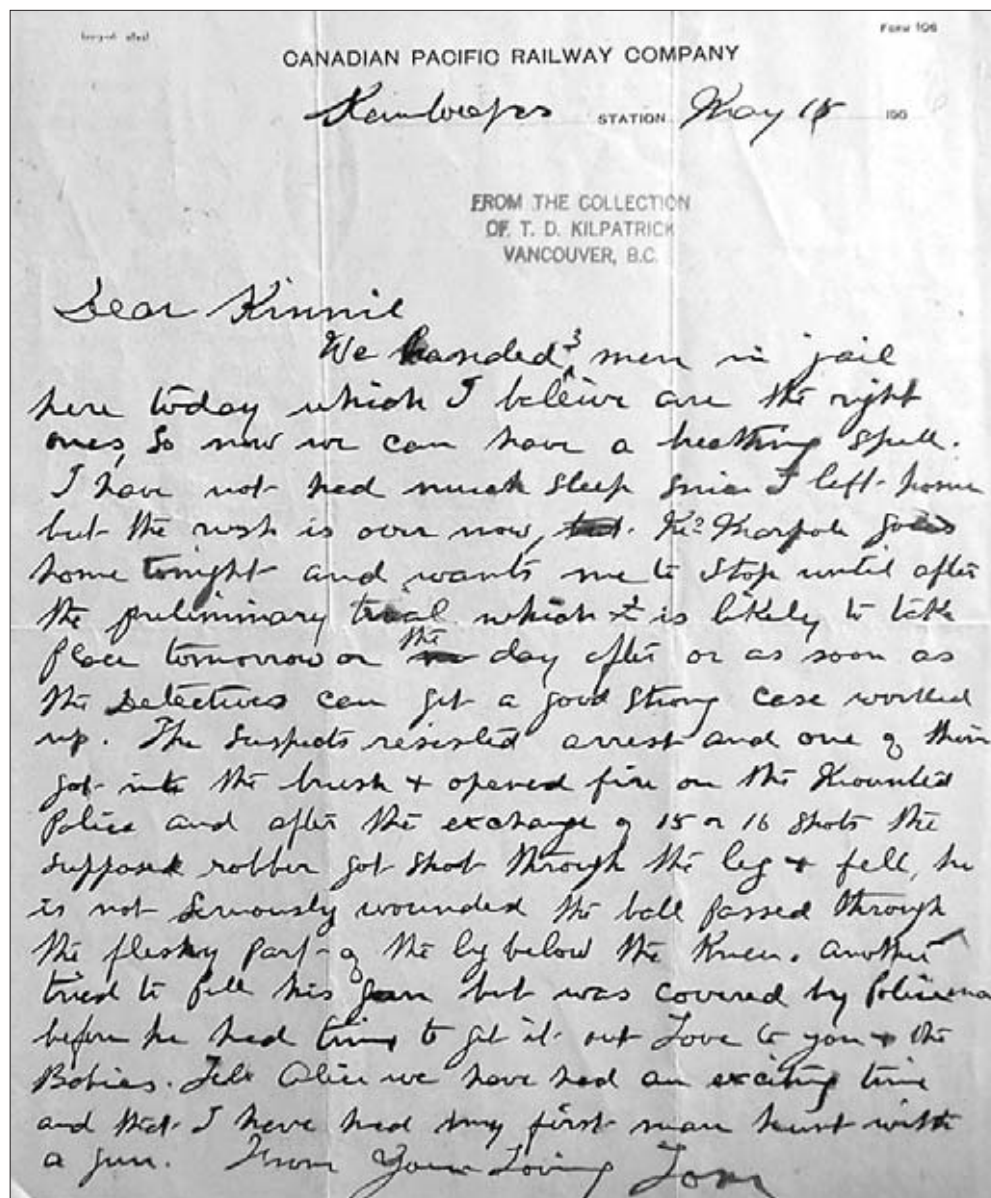 Form 106
CANADIAN PACIFIC RAILWAY COMPANY
Kamloops STATION May 15 190 6
FROM THE COLLECTION
OF T. D. KILPATRICK
VANCOUVER, B.C.
Dear Kinnie
We landed 3 men in jail
here today which I beleive are the right
ones, So now we can have a breathing spell.
I have not had much sleep since I left home
but the rush is over now, Mr Marpole goes
home tonight and wants me to stop until after
the preliminary trial which is likely to take
place tomorrow or the day after or as soon as
the Detectives can get a good strong case worked
up. The Suspects resisted arrest and one of them
got into the brush & opened fire on the Mounted
Police and after the exchange of 15 or 16 shots the
supposed robber got shot through the leg & fell, he
is not seriously wounded the ball passed through
the fleshy part of the leg below the Knee. another
tried to pull his gun but was covered by Policeman
before he had time to get it out Love to you & the
Babies. Tell Alice we have had an exciting time
and that I have had my first man hunt with
a gun. From Your Loving Tom